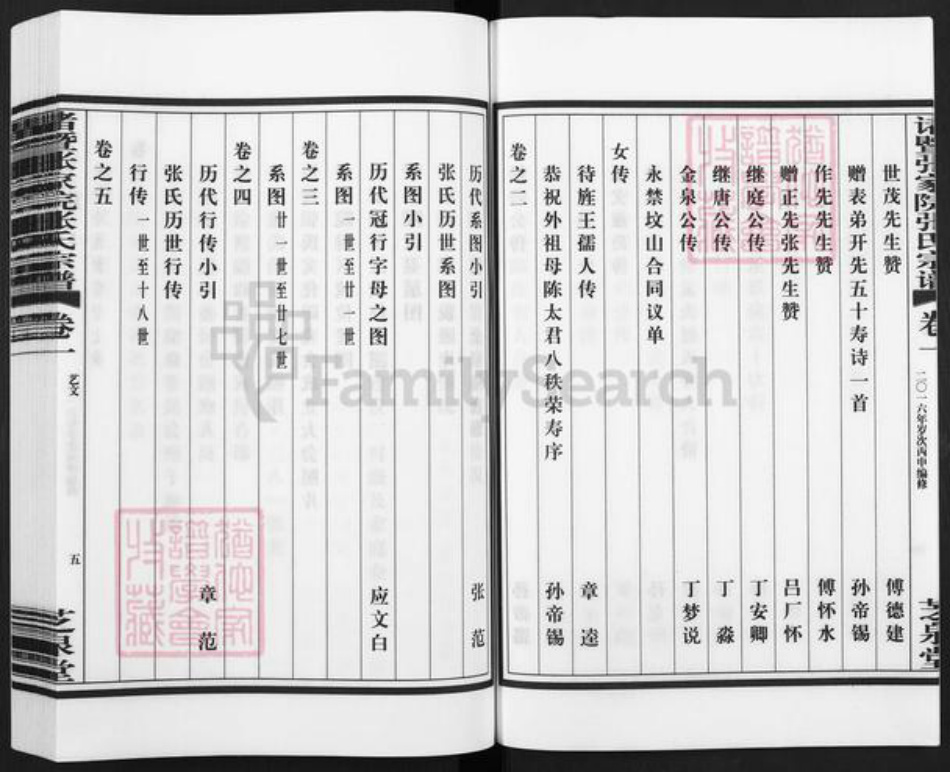 诸暨张家院张氏宗谱
卷一
二〇一六年岁次丙申编修
芝泉堂
世茂先生赞 傅德建
赠表弟开先五十寿诗一首 孙帝锡
作先先生赞 傅怀水
赠正先张先生赞 吕厂怀
继庭公传 丁安卿
继唐公传 丁淼
金泉公传 丁梦说
永禁坟山合同议单
女传
待旌王孺人传 章逵
恭祝外祖母陈太君八秩荣寿序 孙帝锡
卷之二
历代系图小引 张范
张氏历世系图
系图小引
历代冠行字母之图 应文白
系图一世至廿一世
卷之三
系图廿一世至廿七世
卷之四
历代行传小引 章范
张氏历世行传
行传一世至十八世
卷之五
诸暨张家院张氏宗谱
卷一
艺文
五
芝泉堂
FamilySearch